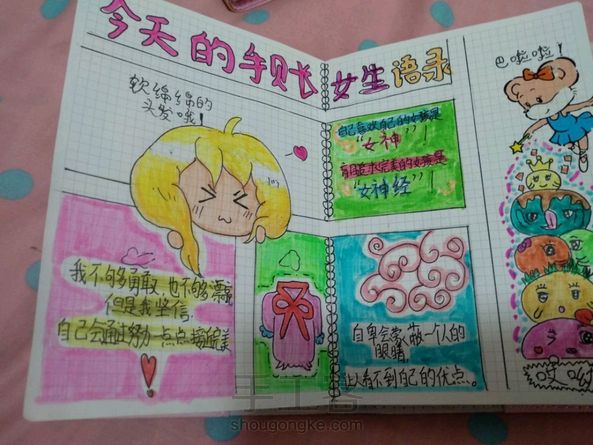 今天的手账
软绵绵的
头发哦！
我不够勇敢，也不够漂亮
但是我坚信，
自己会通过努力一点点接近完美
女生语录
自己喜欢自己的女孩是
“女神”！
有自己追求完美的女孩是
“女神经”！
自卑会蒙蔽一个人的
眼睛
让人看不到自己的优点。
巴啦啦！
手工客
shougongke.com